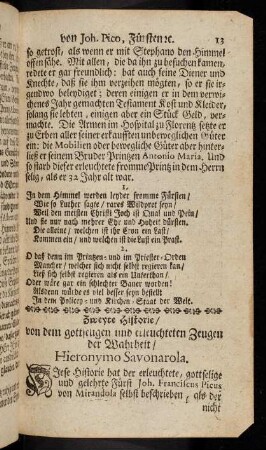 von Joh. Pico, Fürsten ꝛc. 13
so getrost, als wenn er mit Stephano den Himmel
offen sähe. Mit allen, die da ihn zu besuchen kamen,
redete er gar freundlich: bat auch seine Diener und
Knechte, daß sie ihm verzeihen möchten, so er sie ir-
gendwo beleydiget; deren einigen er in dem verwi-
chenes Jahr gemachten Testament Kost und Kleider,
solang sie lebten, einigen aber ein Stück Geld, ver-
machte. Die Armen im Hospital zu Florentz setzte er
zu Erben aller seiner erkaufften unbeweglichen Güter
ein: die Mobilien oder bewegliche Güter aber hinter-
ließ er seinem Bruder Printzen Antonio Maria. Und
so starb dieser erleuchtete fromme Printz in dem Herrn
selig, als er 32 Jahr alt war.
1.
In dem Himmel werden leyder fromme Fürsten/
Wie so Luther sagt/ rares Wildpret seyn/
Weil den meisten Christi Joch ist Quaal und Pein/
Und sie nur nach mehrer Ehr und Hoheit dürsten.
Die alleine/ welchen ist ihr Cron ein Last/
Kommen ein/ und welchen ist die Lust ein Prast.
2.
O daß denn im Printzen- und im Priester-Orden
Mancher/ welcher sich nicht selbst regieren kan/
Ließ sich selbst regieren als ein Unterthan/
Oder wäre gar ein schlechter Bauer worden!
Alsdenn würde es viel besser seyn bestellt
In dem Policey- und Kirchen-Staat der Welt.
Zweyte Historie/
von dem gottseligen und erleuchteten Zeugen
der Wahrheit/
Hieronymo Savonarola.
Diese Historie hat der erleuchtete, gottselige
und gelehrte Fürst Joh. Franciscus Picus
von Mirandola selbst beschrieben, als der
nicht